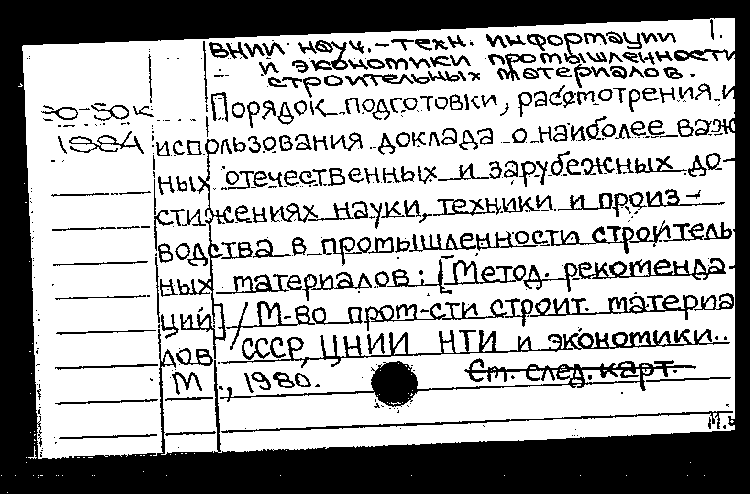 ВНИИ науч.-техн. информации 1.
и экономики промышленности
строительных материалов.
Порядок подготовки, рассмотрения и
1984 использования доклада о наиболее важ
ных отечественных и зарубежных до-
стижениях науки, техники и произ-
водства в промышленности строитель
ных материалов: [Метод. рекоменда-
ций] / М-во пром-сти строит. материа
лов СССР, ЦНИИ НТИ и экономики..
М., 1980. Ст. след. карт.